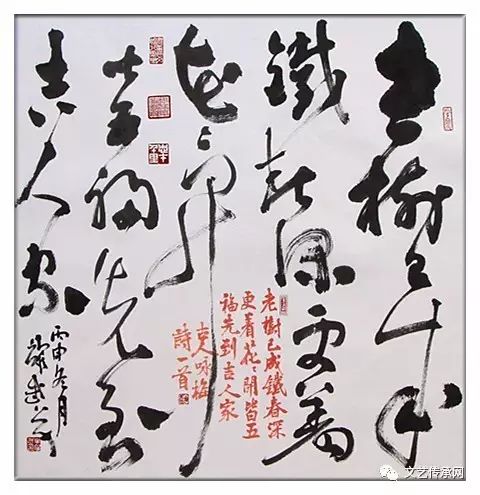 老樹已成
鐵春深更著
花〻開
皆五福先到
吉人家
丙申冬月
老樹已成鐵春深
更着花〻開皆五
福先到吉人家
古人詠梅
詩一首
文艺传承网